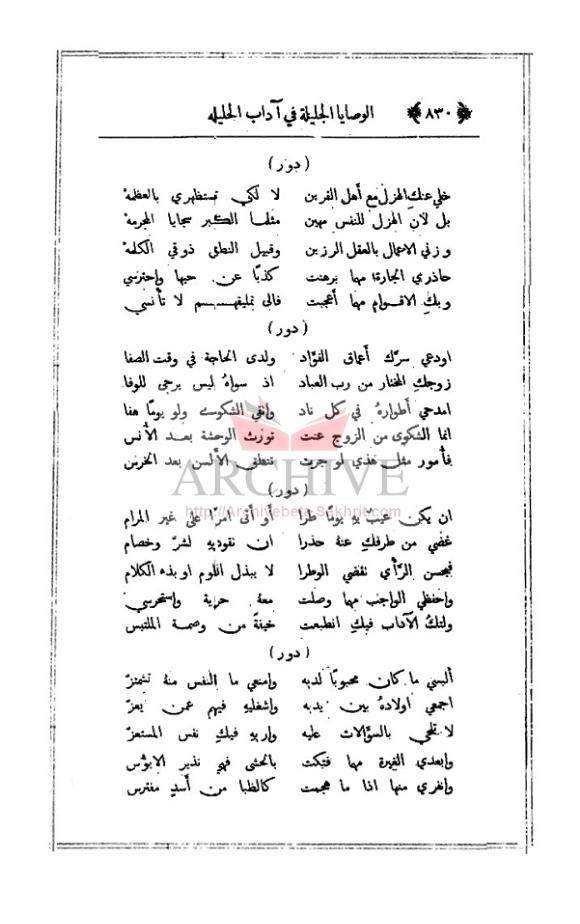 ﴿ ٨٣٠ ﴾ الوصايا الجليلة في آداب الحليله
( دور )
خلي عنك الهزل مع أهل القرين لا لكي تستظهري بالعظمة
بل لان الهزل للنفس مهين مثلما الكبر سجايا المجرمة
وزني الاعمال بالعقل الرزين وقبيل النطق ذوقي الكلمة
حاذري الجارة مهما برهنت كذبًا عن حبها واحترسي
وبكِ الاقوام مهما أعجبت فالى تمليقهم لا تأنسي
( دور )
اودعي سرّك أعماق الفؤاد ولدى الحاجة في وقت الصفا
زوجكِ المختار من رب العباد اذ سواهُ ليس يرجى للوفا
امدحي أطوارهُ في كل ناد واتقي الشكوے ولو يومًا هفا
انما الشكوى من الزوج عنت تورث الوحشة بعد الأنس
فأمور مثل هذي لو جرت تنطق الألسن بعد الخرس
( دور )
ان يكن عيب بهِ يومًا طرا أو أتى امرًا على غير المرام
غضي من طرفكِ عنهُ حذرا ان تقوديهِ لشرّ وخصام
فبحسن الرّأي تقضي الوطرا لا ببذل اللوم او بذه الكلام
واحفظي الواجب مهما وصلت معهُ حرية واستحرسي
ولتكُ الآداب فيكِ انطبعت خيفةً من وصمة الملتبس
( دور )
ألبسي ما كان محبوبًا لديه وامنعي ما النفس منهُ تشمئزّ
اجمعي اولادهُ بين يديه واشغليهِ فيهم عمن يعزّ
لا تلحي بالسؤالات عليه واربهِ فيكِ نفس المستعزّ
وابعدي الغيرة مهما فتكت بالحشى فهي نذير الابؤس
وانفري منها اذا ما هجمت كالظبا من أسدٍ مفترس
ARCHIVE
http://Archivebeta.Sakhrit.com